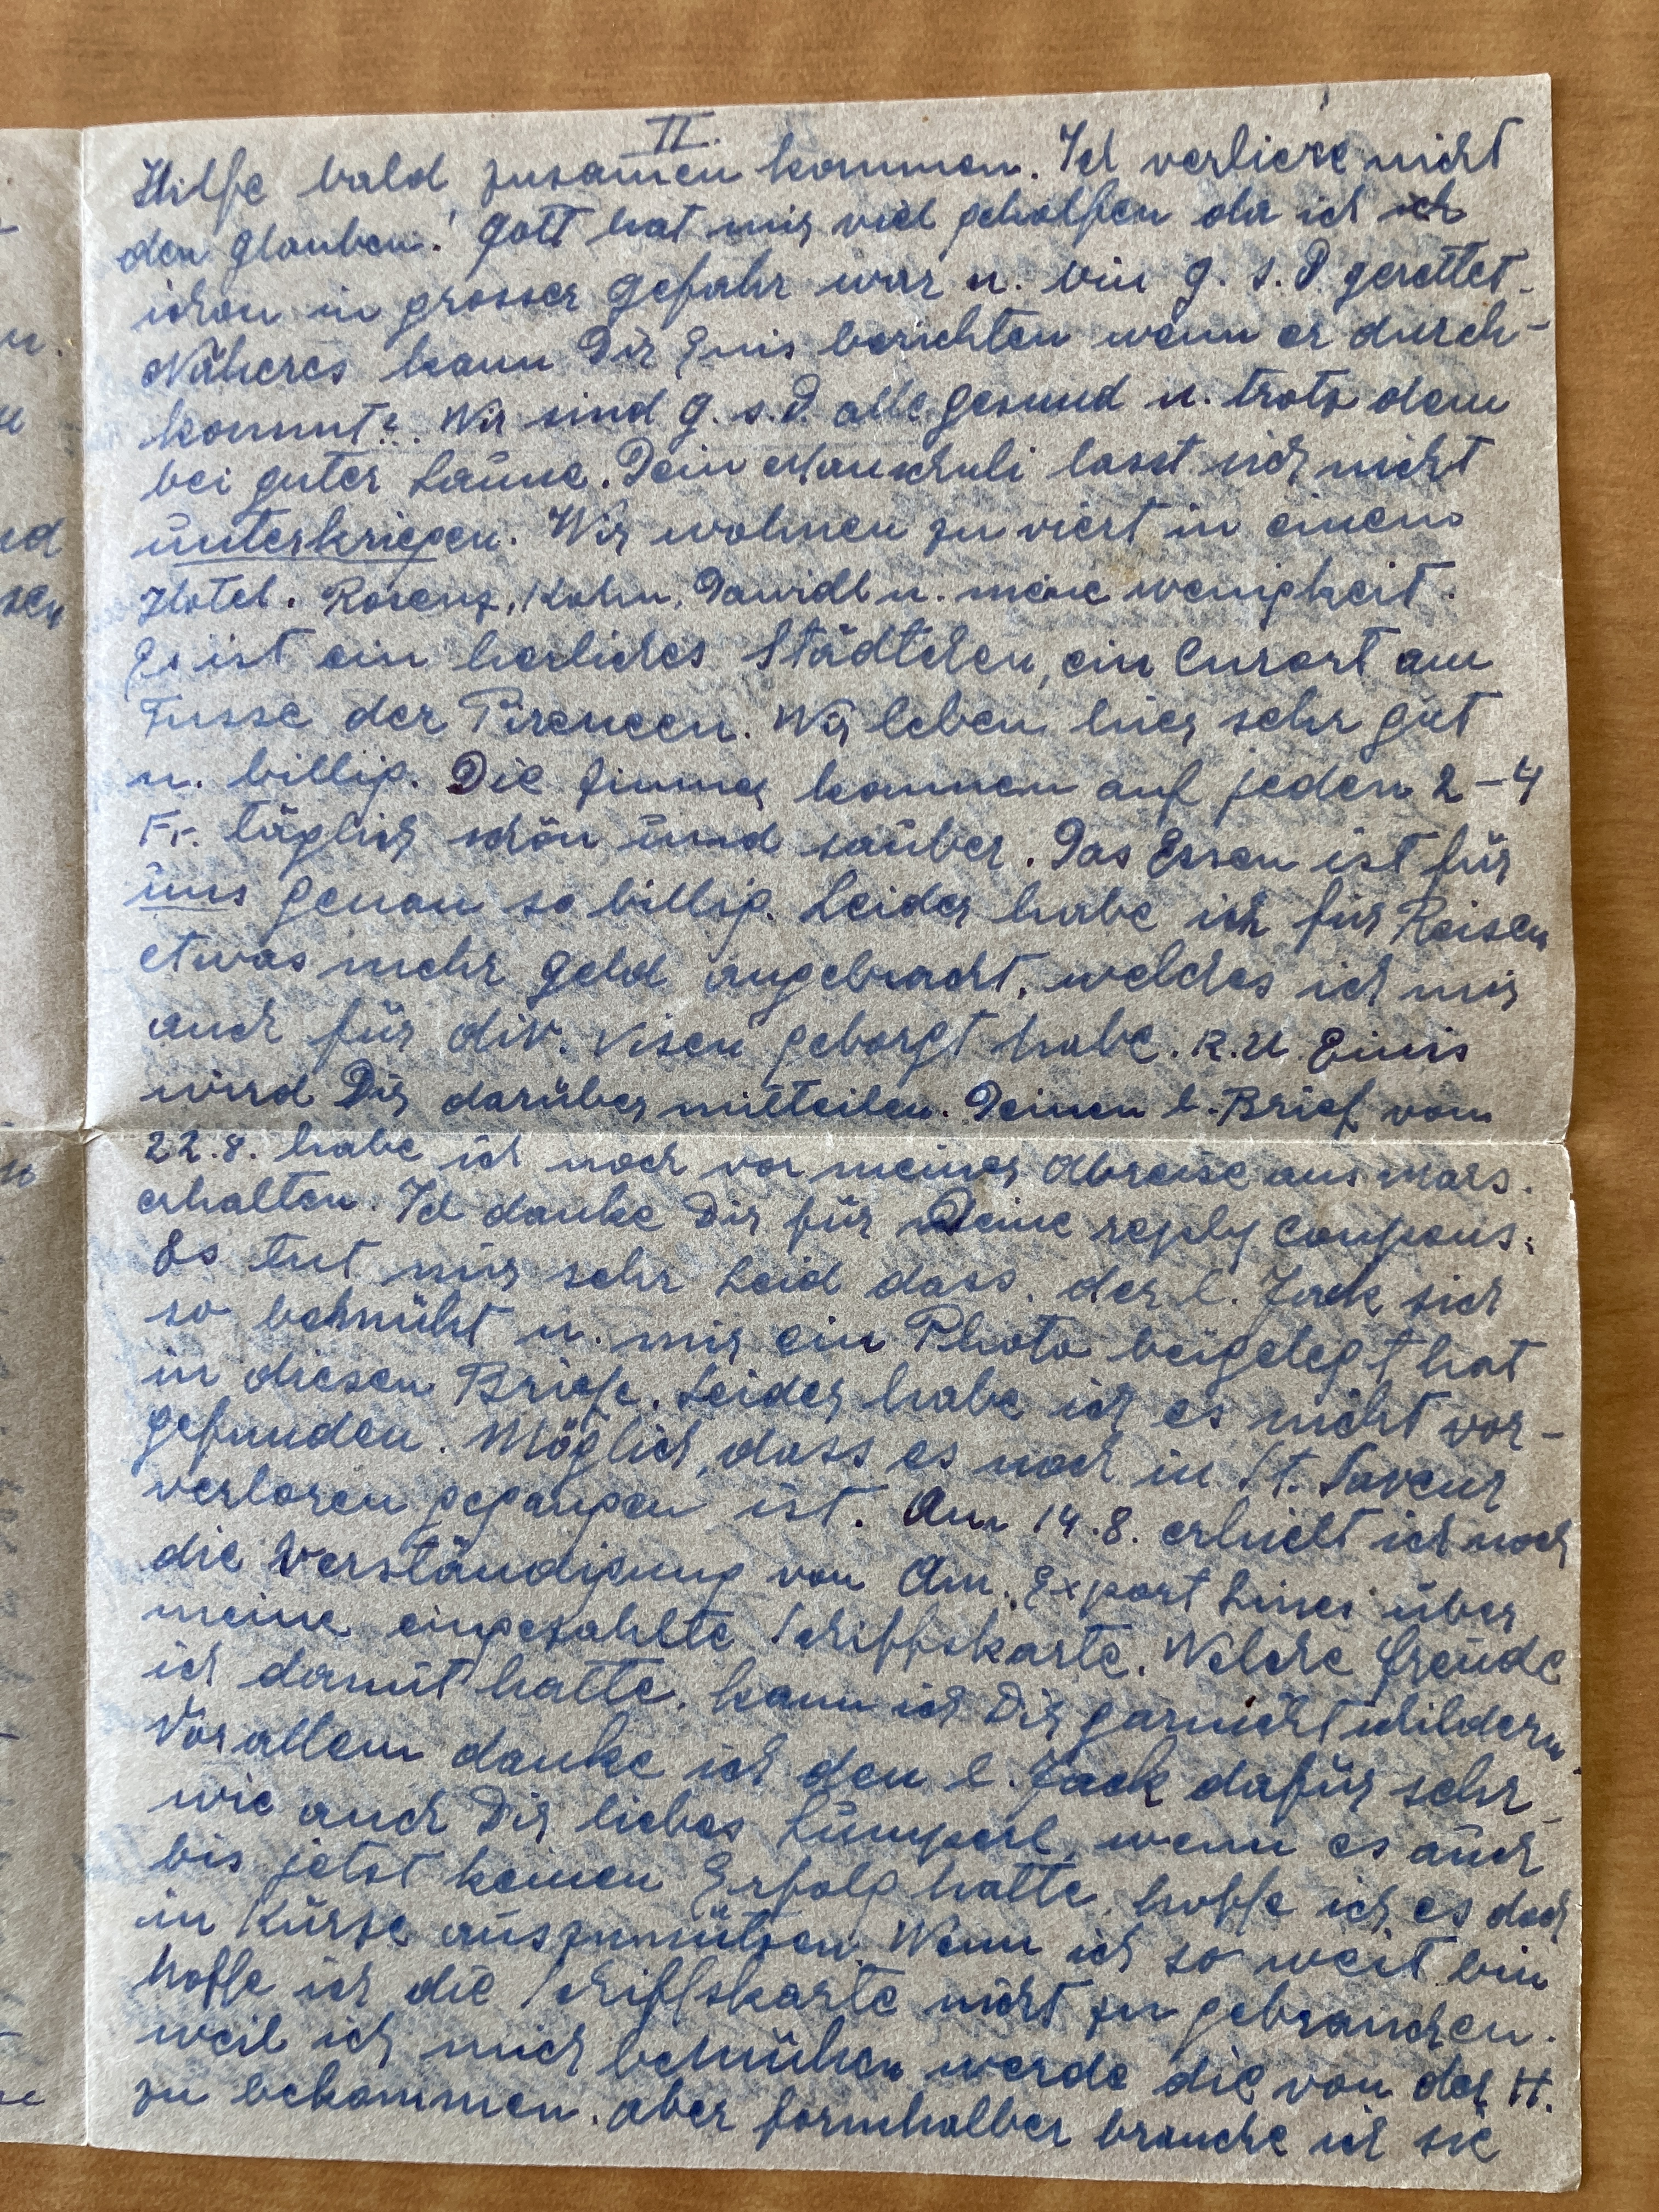 II.
Hilfe bald zusamen kommen. Ich verliere nicht
den Glauben! Gott hat mir viel geholfen da ich
schon in grosser Gefahr war u. bin g. s. D. gerettet.
Näheres kann Dir berichten wenn er durch-
kommt?. Wir sind g. s. D. alle gesund u. trotz dem
bei guter Laune. Dein lasst sich nicht
unterkriegen. Wir wohnen zu viert in einem
Hotel. Rosenz, Kohn, Dawidl u. meine wenigkeit.
Es ist ein herliches Städtchen, ein Curort am
Fusse der Pireneen. Wir leben hier sehr gut
u. billig. Die Zimmer kommen auf jeden 2-4
Fr. täglich schön und sauber. Das Essen ist für
uns genau so billig. Leider habe ich für Reisen
etwas mehr Geld angebracht, welches ich mir
auch für div. Visen geborgt habe. R. U.
wird Dir darüber mitteilen. Deinen l. Brief vom
22.8. habe ich noch vor meiner Abreise aus Mars.
erhalten. Ich danke Dir für Deine reply Coupons.
Es tut mir sehr Leid dass, der l. Jack sich
so bemüht u. mir ein Photo beigelegt hat
in diesen Briefe. Leider habe ich es nicht vor-
gefunden. Möglich, dass es noch in St. Saveur
verloren gegangen ist. Am 14.8. erhielt ich noch
die Verständigung von Am. Export Lines über
meine eingezahlte Schiffskarte. Welche Freude
ich damit hatte, kann ich Dir garnicht schildern
Vor allem danke ich den l. Jack dafür sehr
wie auch Dir liebes Lumperl, wenn es auch
bis jetzt keinen Erfolg hatte, hoffe ich es doch
in Kürze auszunützen. Wenn ich so weit bin
hoffe ich die Schiffskarte nicht zu gebrauchen.
weil ich mich bemühen werde die von der H.
zu bekommen. aber formhalber brauche ich sie